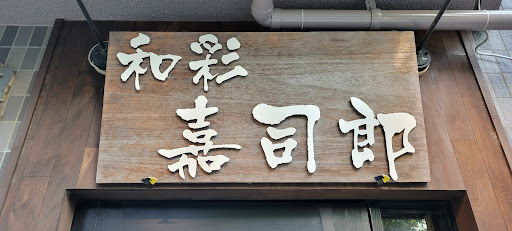 和彩
嘉司郎